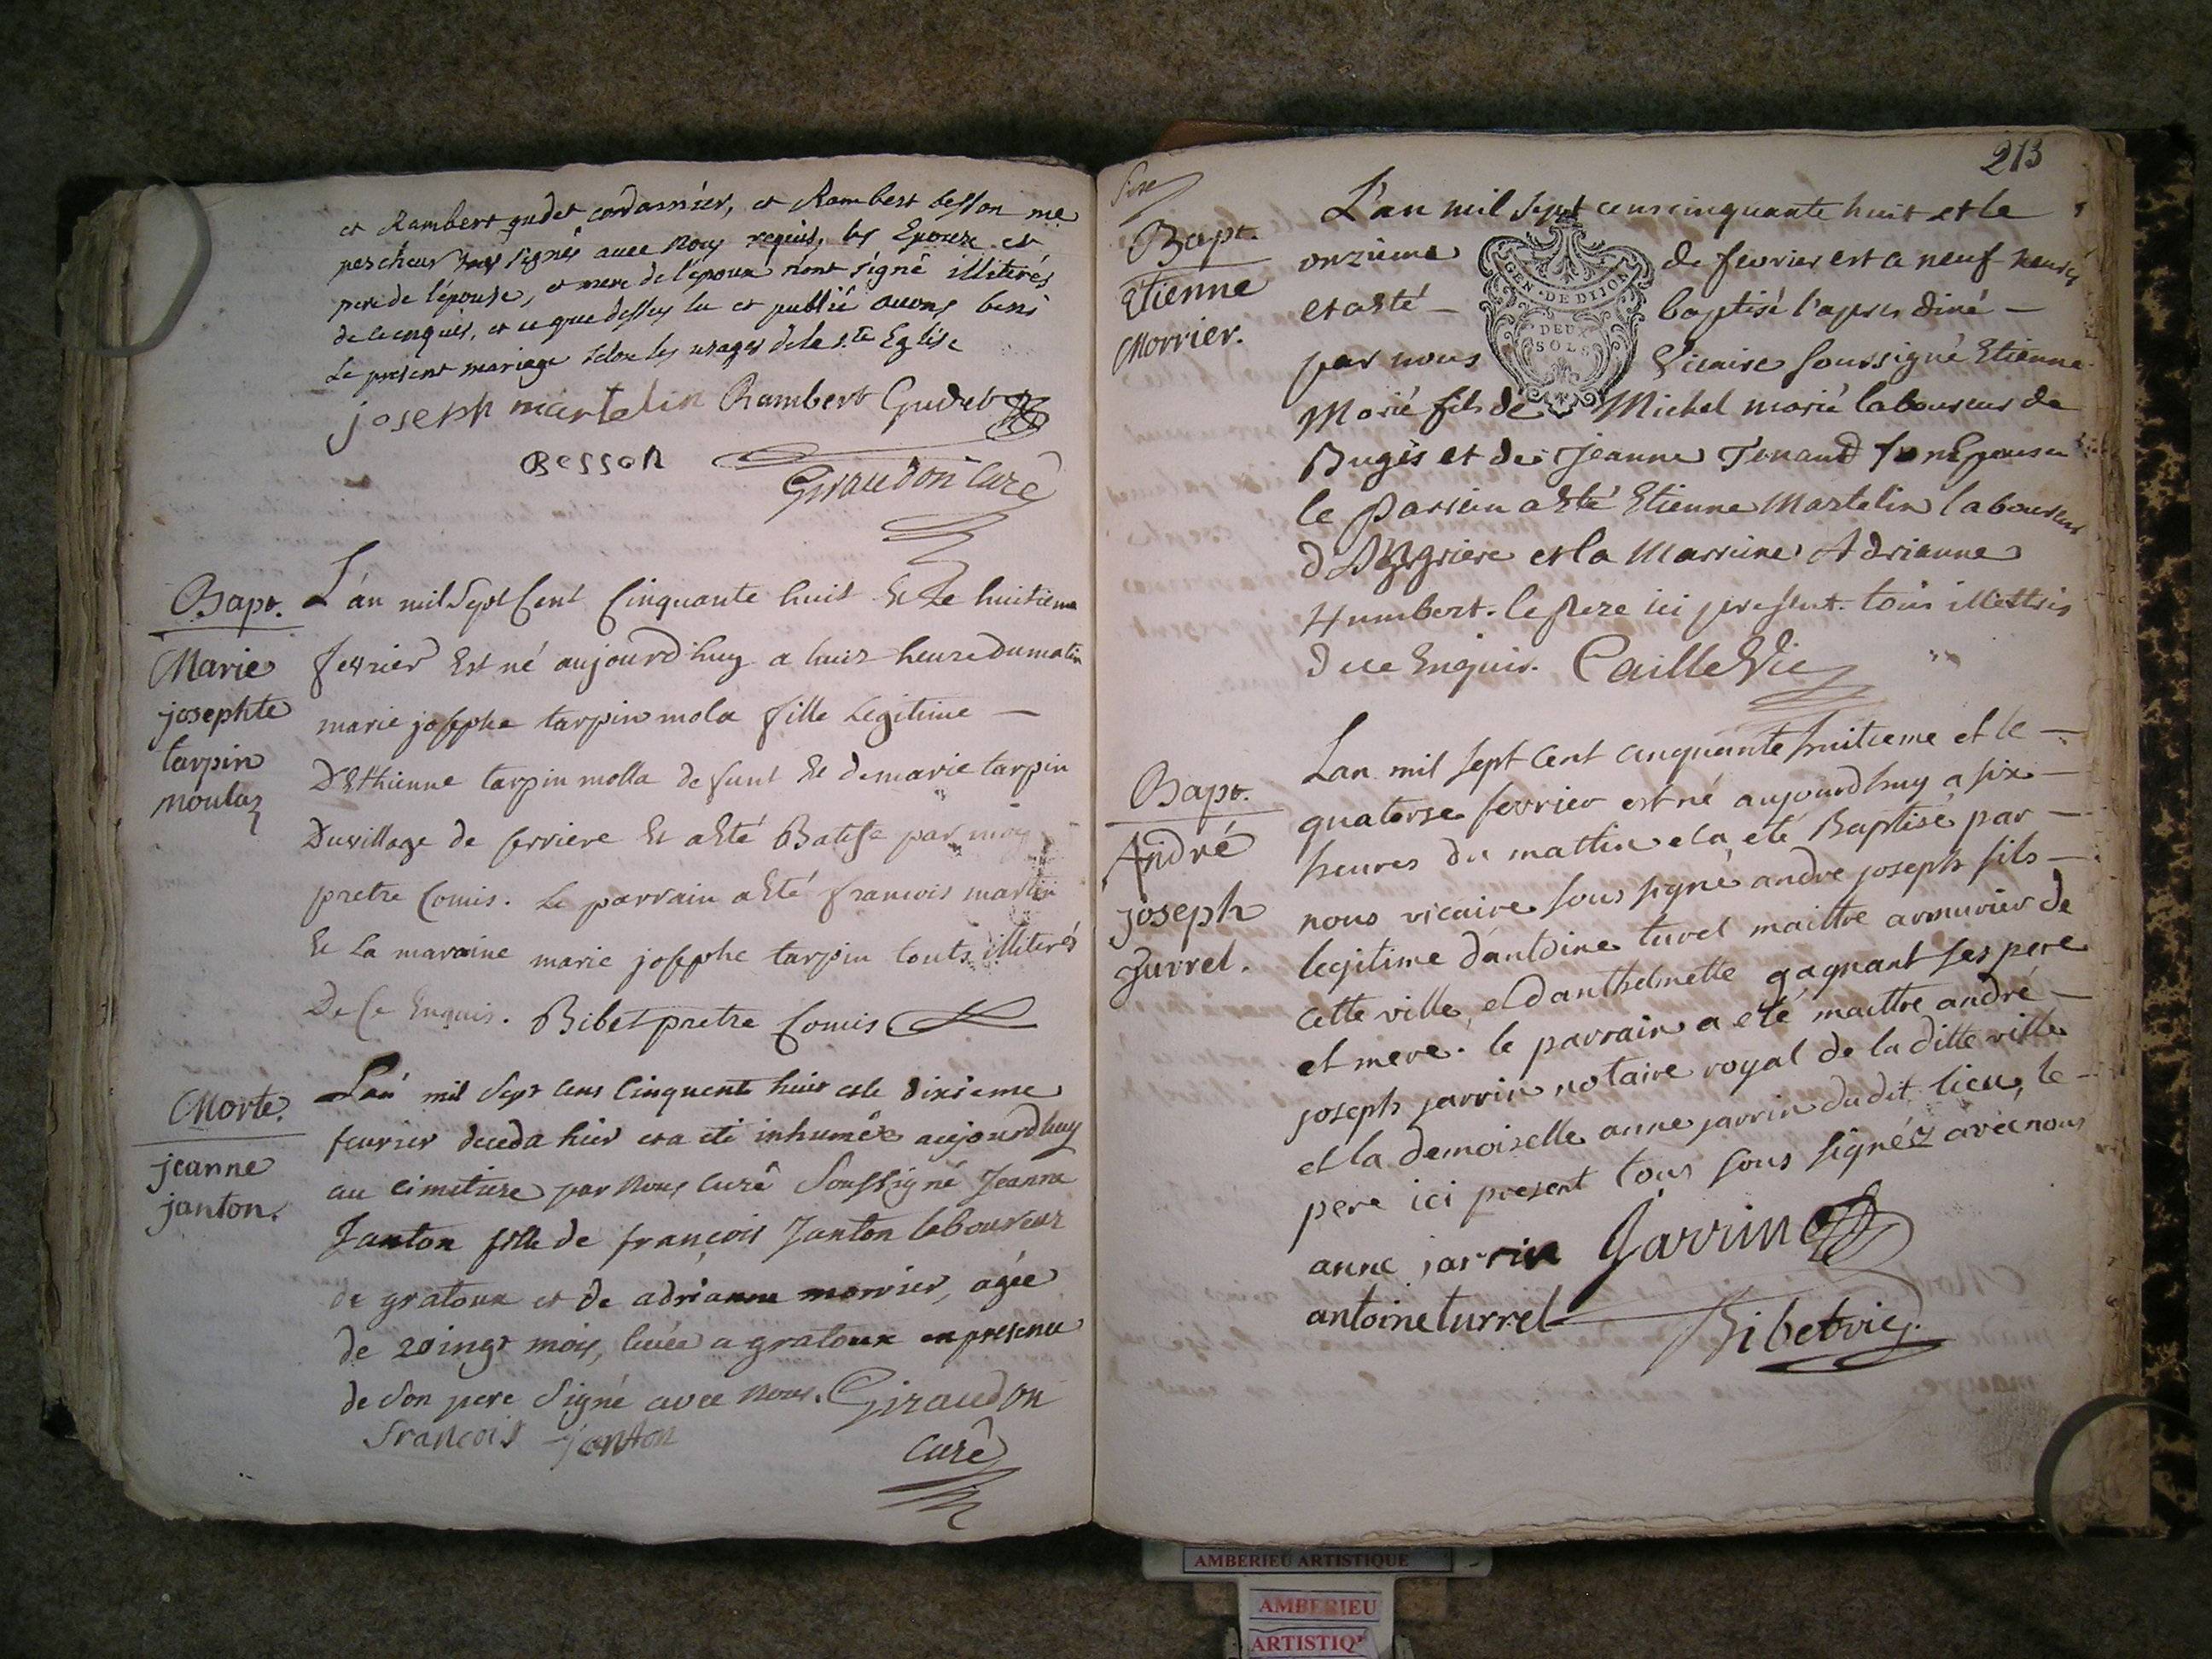 et Rambert gudet cordonnier, et Rambert besson me
pescheur signés avec nous requis, les Epouze et
pere de l'épouse, et mere de l'époux n'ont signé illiterés
de ce enquis, et ce que dessus lu et publié avons beni
Le present mariage selon les usages de la ste Eglise
joseph martelin Rambert Gudet
Besson
Giraudon Curé
Bapt.
Marie
josephte
tarpin
moulaz
L'án mil Sept Cent Cinquante huit Et Le huitieme
fevrier Est né aujourd'huy a huit heure du matin
marie josephe tarpin mola fille Legitime —
D'Ethienne tarpin molla defunt Et de marie tarpin
Du village de serriere Et a Eté Batise par moy
pretre Comis. Le parrain a Eté francois martin
Et La maraine marie josephe tarpin touts illiterés
De Ce Enquis. Bibet pretre Comis
Morte.
jeanne
janton.
L'an mil Sept Cens Cinquente huit et le dixieme
fevrier deceda hier et a eté inhumée aujourdhuy
au cimetiere par nous Curé Soussigné Jeanne
Janton fille de françois Janton laboureur
de gratoux et de adrianne morrier, agée
de 20ingt mois, levée a gratoux en presence
de Son pere Signé avec nous. Giraudon
francois janton
Curé
213
Bapt.
Etienne
Morrier.
L'an mil Sept cens cinquante huit et le
onzieme de fevrier est a neuf heures
et a esté — baptisé l'apres diné —
par nous Vicaire soussigné Etienne
Morié fils de Michel morié laboureur de
Bugés et de Jeanne Tenand son Epouse
le Parrein a Eté Etienne Martelin laboureur
et la Marraine Adrianne
Humbert. le Pere ici present. tous illettrés
de ce Enquis. Caille Vic
GEN. DE DIJON
DEUX
SOLS
Bapt.
André
joseph
Turrel.
Lan mil sept cent cinquante huitieme et le —
quatorse fevrier est né aujourdhuy a six —
heures du mattin et a été Baptisé par —
nous vicaire sous signé andre joseph fils —
legitime d'antoine turel maittre armurier de
cette ville, et d'anthelmette gagnant ses pere
et mere. le parrain a eté maittre andré —
joseph jarrin notaire royal de la ditte ville
et la demoiselle anne jarrin du dit lieu, le —
pere ici present tous sous signéz avec nous
anne jarrin Jarrin
antoine turrel
Bibet vic.
AMBERIEU ARTISTIQUE
AMBERIEU
ARTISTIQ